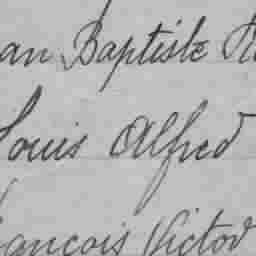 an Baptiste
Louis Alfred
ancois Victor